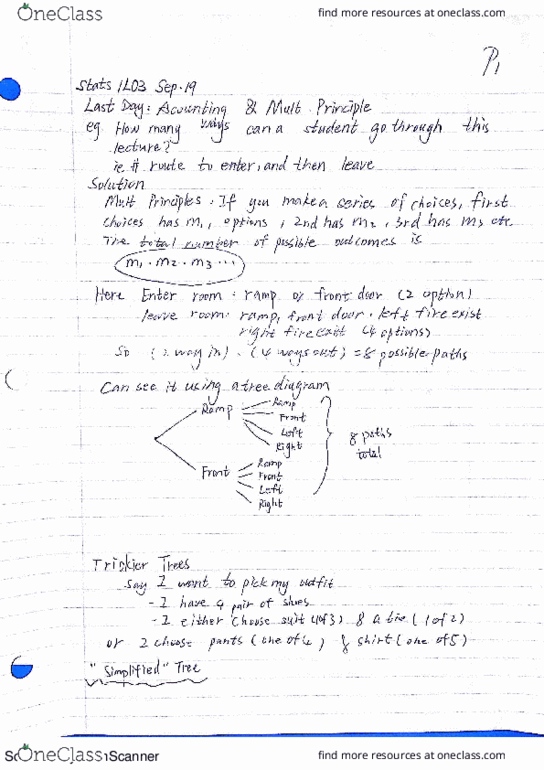 OneClass
find more resources at oneclass.com
P1
Stats 1L03 Sep.19
Last Day: Acounting & Mult Principle
eg. How many ways can a student go through this
lecture?
ie # route to enter, and then leave
Solution
Mult Principles. If you make a series of choices, first
choices has m1, options, 2nd has m2, 3rd has m3 etc.
The total number of possible outcomes is
m1 · m2 · m3 ···
Here Enter room: ramp or front door (2 option)
leave room: ramp, front door, left fire exist
right fire exist (4 options)
So (2 way in) · (4 ways out) = 8 possible paths
Can see it using a tree diagram
Ramp
Ramp
Front
Left
Right
8 paths
total
Front
Ramp
Front
Left
Right
Triskier Trees
Say I want to pick my outfit
- I have 4 pair of shoes
- I either choose suit (1 of 3) & a tie (1 of 2)
or I choose pants (one of 4) & shirt (one of 5)
"Simplified" Tree
OneClass
Scanner
find more resources at oneclass.com